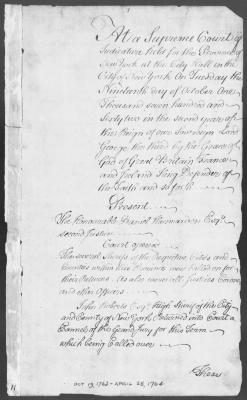 At a Supreme Court of
Judicature held for the Province of
New York at the City Hall in the
City of New York On Tuesday the
Nineteenth day of October One
Thousand seven hundred and
Sixty two in the second year of
the Reign of our Sovereign Lord
George the third by the Grace of
God of Great Britain France
and Ireland King Defender of
the Faith and so forth
Present
The Honourable Daniel Horsmanden Esqr.
second Justice
Court opened
The several Sherifs of the respective Cities and
Counties within this Province were called on for
their Returns As also were all Justices Coroners
and other Officers
John Roberts Esqr. High Sherif of the City
and County of New York Returned into Court a
Pannel of the Grand Jury for this Term
which being Called over
OCT 19, 1762 - APRIL 28, 1764